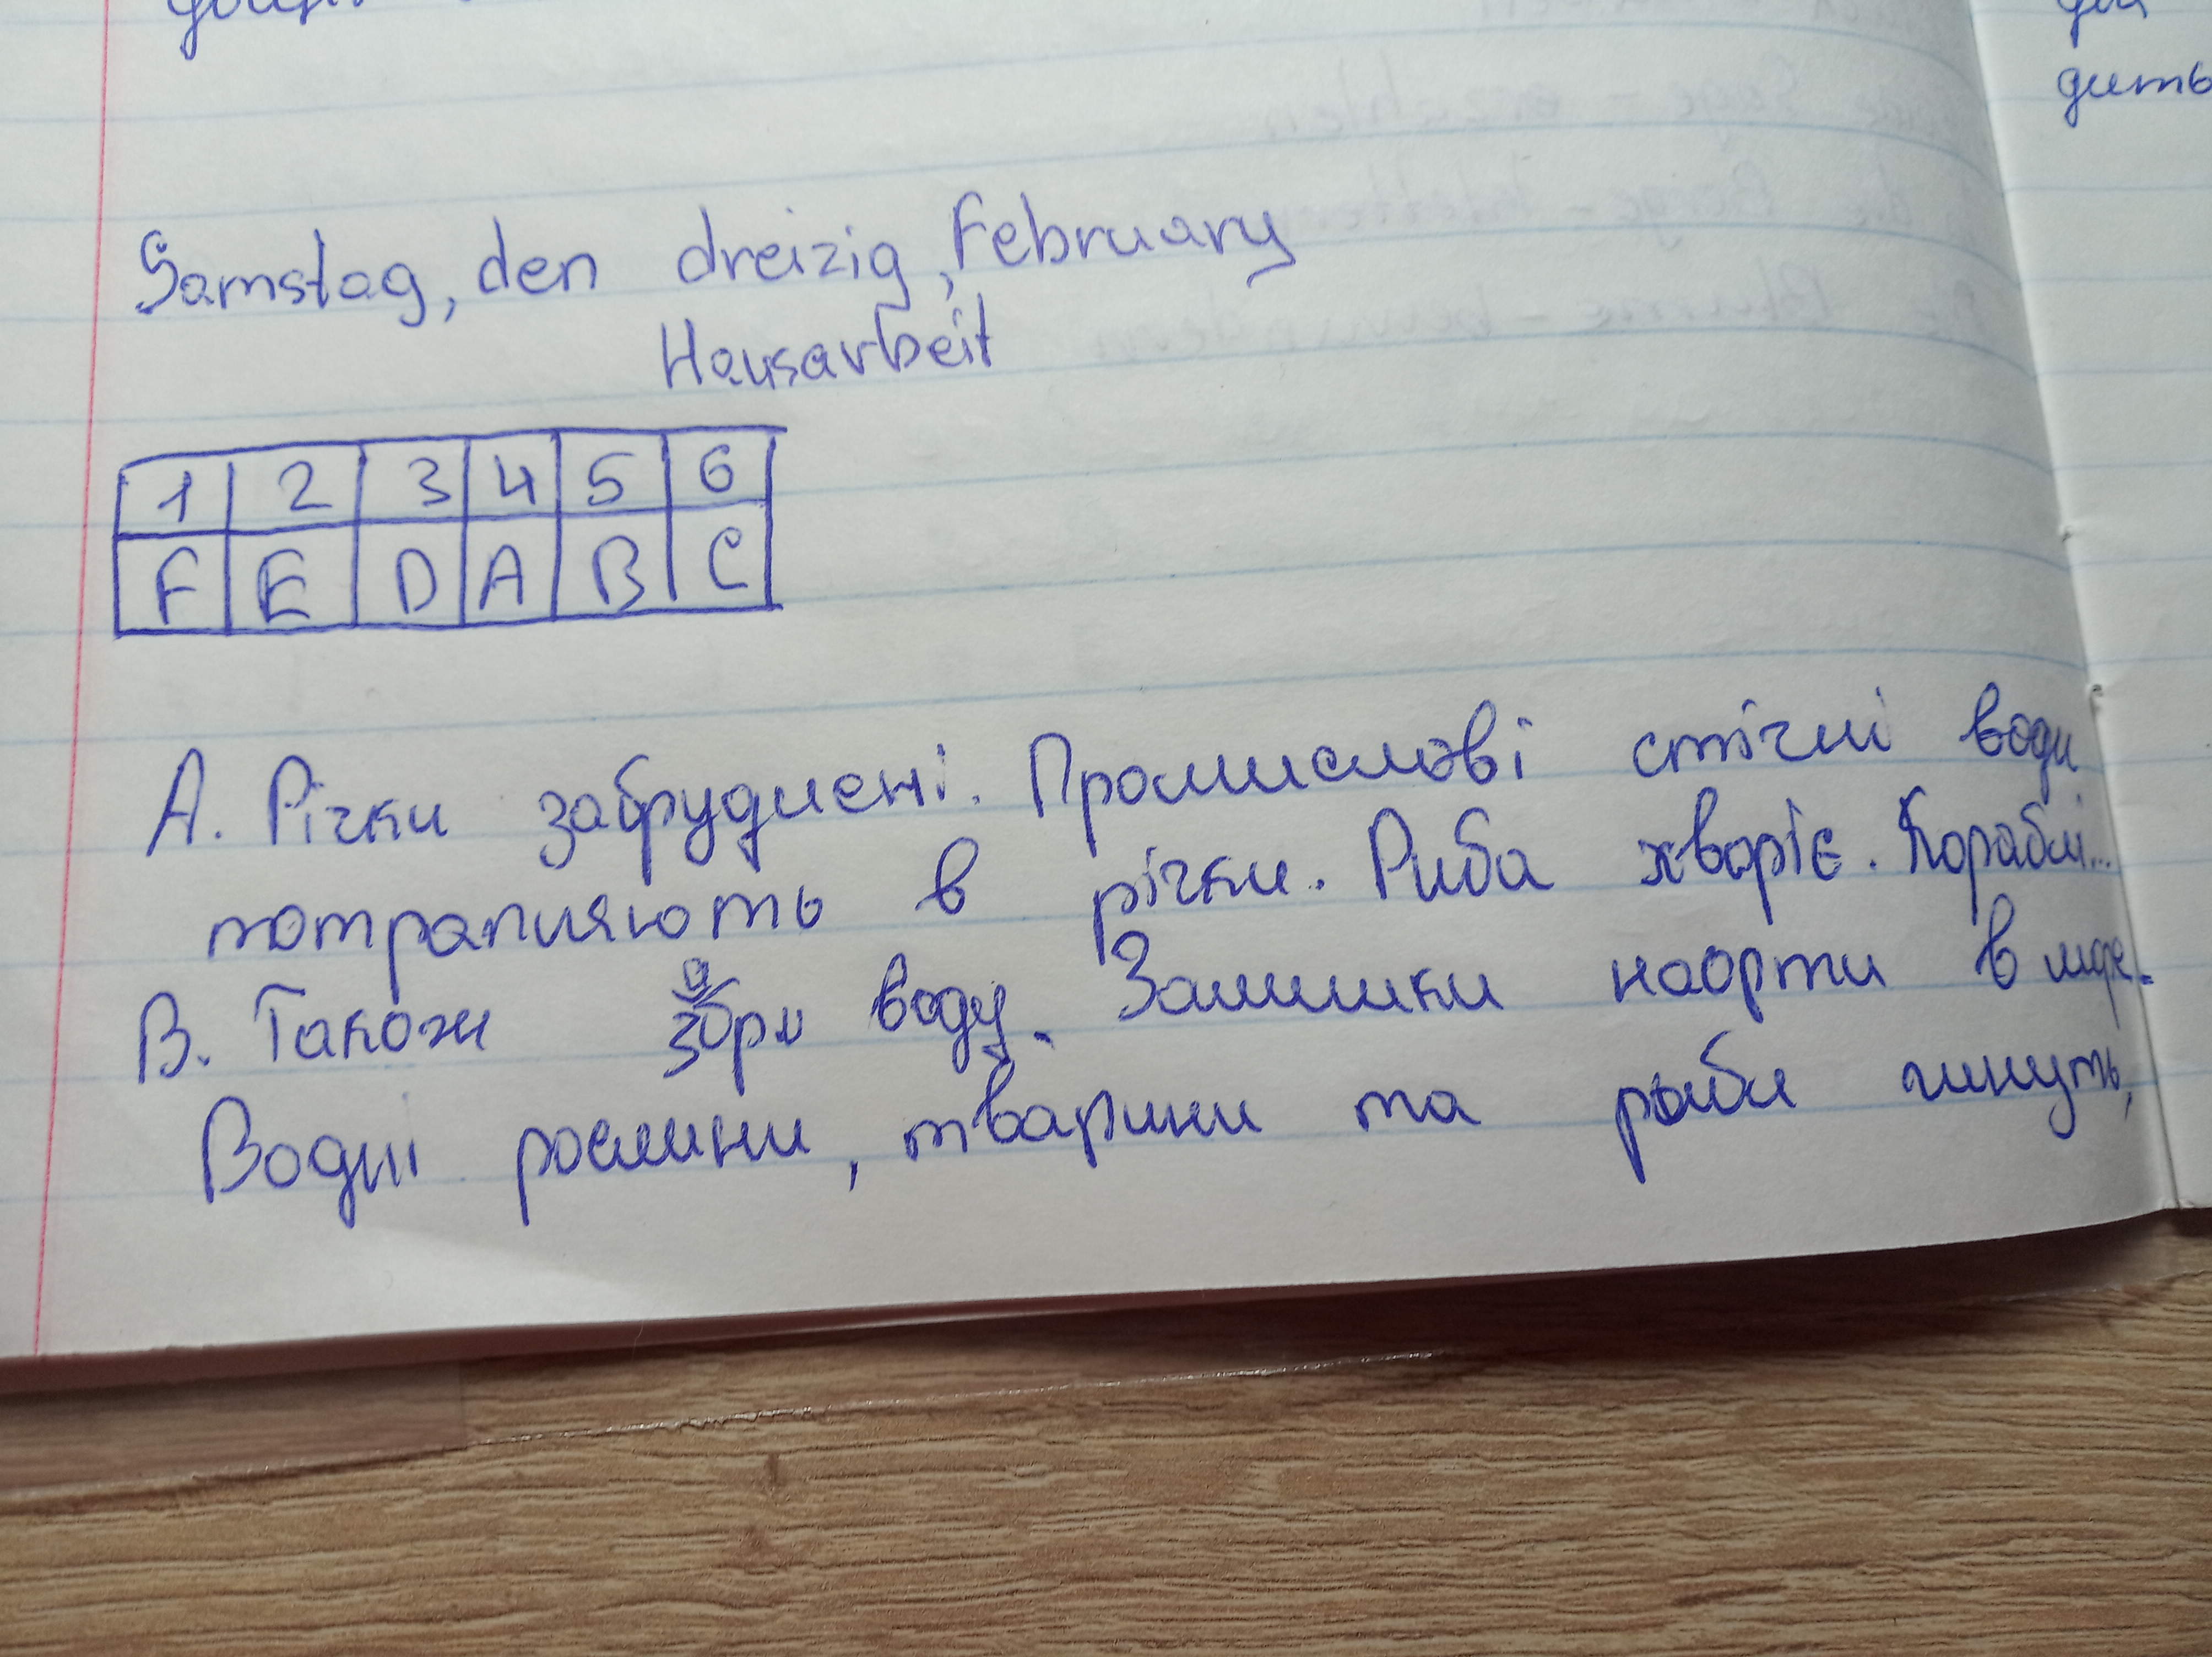 Samstag, den dreizig, February
Hausarbeit
1 2 3 4 5 6
F E D A B C
дить
А. Річки забруднені. Промислові стічні води
потрапляють в річки. Риба хворіє. Кораблі...
В. Також воду. Залишки наорти в море.
Водні рослини, тварини та риби гинуть,